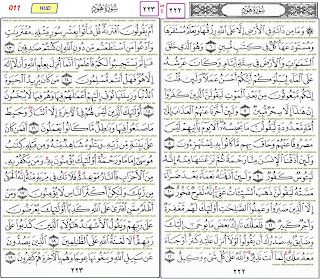 سُورَةُ هُودٍ
٢٢٢
۞ وَمَا مِن دَآبَّةٍ فِي ٱلْأَرْضِ إِلَّا عَلَى ٱللَّهِ رِزْقُهَا وَيَعْلَمُ مُسْتَقَرَّهَا
وَمُسْتَوْدَعَهَا كُلٌّ فِي كِتَٰبٍ مُّبِينٍ ٦ وَهُوَ ٱلَّذِي خَلَقَ
ٱلسَّمَٰوَٰتِ وَٱلْأَرْضَ فِي سِتَّةِ أَيَّامٍ وَكَانَ عَرْشُهُۥ
عَلَى ٱلْمَآءِ لِيَبْلُوَكُمْ أَيُّكُمْ أَحْسَنُ عَمَلًا وَلَئِن قُلْتَ
إِنَّكُم مَّبْعُوثُونَ مِنۢ بَعْدِ ٱلْمَوْتِ لَيَقُولَنَّ ٱلَّذِينَ كَفَرُوٓا۟
إِنْ هَٰذَآ إِلَّا سِحْرٌ مُّبِينٌ ٧ وَلَئِنْ أَخَّرْنَا عَنْهُمُ ٱلْعَذَابَ إِلَىٰٓ
أُمَّةٍ مَّعْدُودَةٍ لَّيَقُولُنَّ مَا يَحْبِسُهُۥٓ أَلَا يَوْمَ يَأْتِيهِمْ لَيْسَ
مَصْرُوفًا عَنْهُمْ وَحَاقَ بِهِم مَّا كَانُوا۟ بِهِۦ يَسْتَهْزِءُونَ ٨
وَلَئِنْ أَذَقْنَا ٱلْإِنسَٰنَ مِنَّا رَحْمَةً ثُمَّ نَزَعْنَٰهَا مِنْهُ إِنَّهُۥ
لَيَـُٔوسٌ كَفُورٌ ٩ وَلَئِنْ أَذَقْنَٰهُ نَعْمَآءَ بَعْدَ ضَرَّآءَ
مَسَّتْهُ لَيَقُولَنَّ ذَهَبَ ٱلسَّيِّـَٔاتُ عَنِّيٓ إِنَّهُۥ لَفَرِحٌ فَخُورٌ ١٠
إِلَّا ٱلَّذِينَ صَبَرُوا۟ وَعَمِلُوا۟ ٱلصَّٰلِحَٰتِ أُو۟لَٰٓئِكَ لَهُم مَّغْفِرَةٌ
وَأَجْرٌ كَبِيرٌ ١١ فَلَعَلَّكَ تَارِكٌۢ بَعْضَ مَا يُوحَىٰٓ إِلَيْكَ
وَضَآئِقٌۢ بِهِۦ صَدْرُكَ أَن يَقُولُوا۟ لَوْلَآ أُنزِلَ عَلَيْهِ كَنزٌ أَوْ جَآءَ
مَعَهُۥ مَلَكٌ إِنَّمَآ أَنتَ نَذِيرٌ وَٱللَّهُ عَلَىٰ كُلِّ شَيْءٍ وَكِيلٌ ١٢
٢٢٢
011 HUD سُورَةُ هُودٍ ٢٢٣
أَمْ يَقُولُونَ ٱفْتَرَىٰهُ قُلْ فَأْتُوا۟ بِعَشْرِ سُوَرٍ مِّثْلِهِۦ مُفْتَرَيَٰتٍ
وَٱدْعُوا۟ مَنِ ٱسْتَطَعْتُم مِّن دُونِ ٱللَّهِ إِن كُنتُمْ صَٰدِقِينَ ١٣
فَإِلَّمْ يَسْتَجِيبُوا۟ لَكُمْ فَٱعْلَمُوٓا۟ أَنَّمَآ أُنزِلَ بِعِلْمِ ٱللَّهِ وَأَن لَّآ
إِلَٰهَ إِلَّا هُوَ فَهَلْ أَنتُم مُّسْلِمُونَ ١٤ مَن كَانَ يُرِيدُ ٱلْحَيَوٰةَ
ٱلدُّنْيَا وَزِينَتَهَا نُوَفِّ إِلَيْهِمْ أَعْمَٰلَهُمْ فِيهَا وَهُمْ فِيهَا لَا يُبْخَسُونَ
١٥ أُو۟لَٰٓئِكَ ٱلَّذِينَ لَيْسَ لَهُمْ فِي ٱلْـَٔاخِرَةِ إِلَّا ٱلنَّارُ وَحَبِطَ
مَا صَنَعُوا۟ فِيهَا وَبَٰطِلٌ مَّا كَانُوا۟ يَعْمَلُونَ ١٦ أَفَمَن كَانَ
عَلَىٰ بَيِّنَةٍ مِّن رَّبِّهِۦ وَيَتْلُوهُ شَاهِدٌ مِّنْهُ وَمِن قَبْلِهِۦ كِتَٰبُ
مُوسَىٰٓ إِمَامًا وَرَحْمَةً أُو۟لَٰٓئِكَ يُؤْمِنُونَ بِهِۦ وَمَن يَكْفُرْ بِهِۦ
مِنَ ٱلْأَحْزَابِ فَٱلنَّارُ مَوْعِدُهُۥ فَلَا تَكُ فِي مِرْيَةٍ مِّنْهُ إِنَّهُ ٱلْحَقُّ
مِن رَّبِّكَ وَلَٰكِنَّ أَكْثَرَ ٱلنَّاسِ لَا يُؤْمِنُونَ ١٧ وَمَنْ أَظْلَمُ
مِمَّنِ ٱفْتَرَىٰ عَلَى ٱللَّهِ كَذِبًا أُو۟لَٰٓئِكَ يُعْرَضُونَ
عَلَىٰ رَبِّهِمْ وَيَقُولُ ٱلْأَشْهَٰدُ هَٰٓؤُلَآءِ ٱلَّذِينَ كَذَبُوا۟ عَلَىٰ
رَبِّهِمْ أَلَا لَعْنَةُ ٱللَّهِ عَلَى ٱلظَّٰلِمِينَ ١٨ ٱلَّذِينَ يَصُدُّونَ
عَن سَبِيلِ ٱللَّهِ وَيَبْغُونَهَا عِوَجًا وَهُم بِٱلْـَٔاخِرَةِ هُمْ كَٰفِرُونَ ١٩
٢٢٣